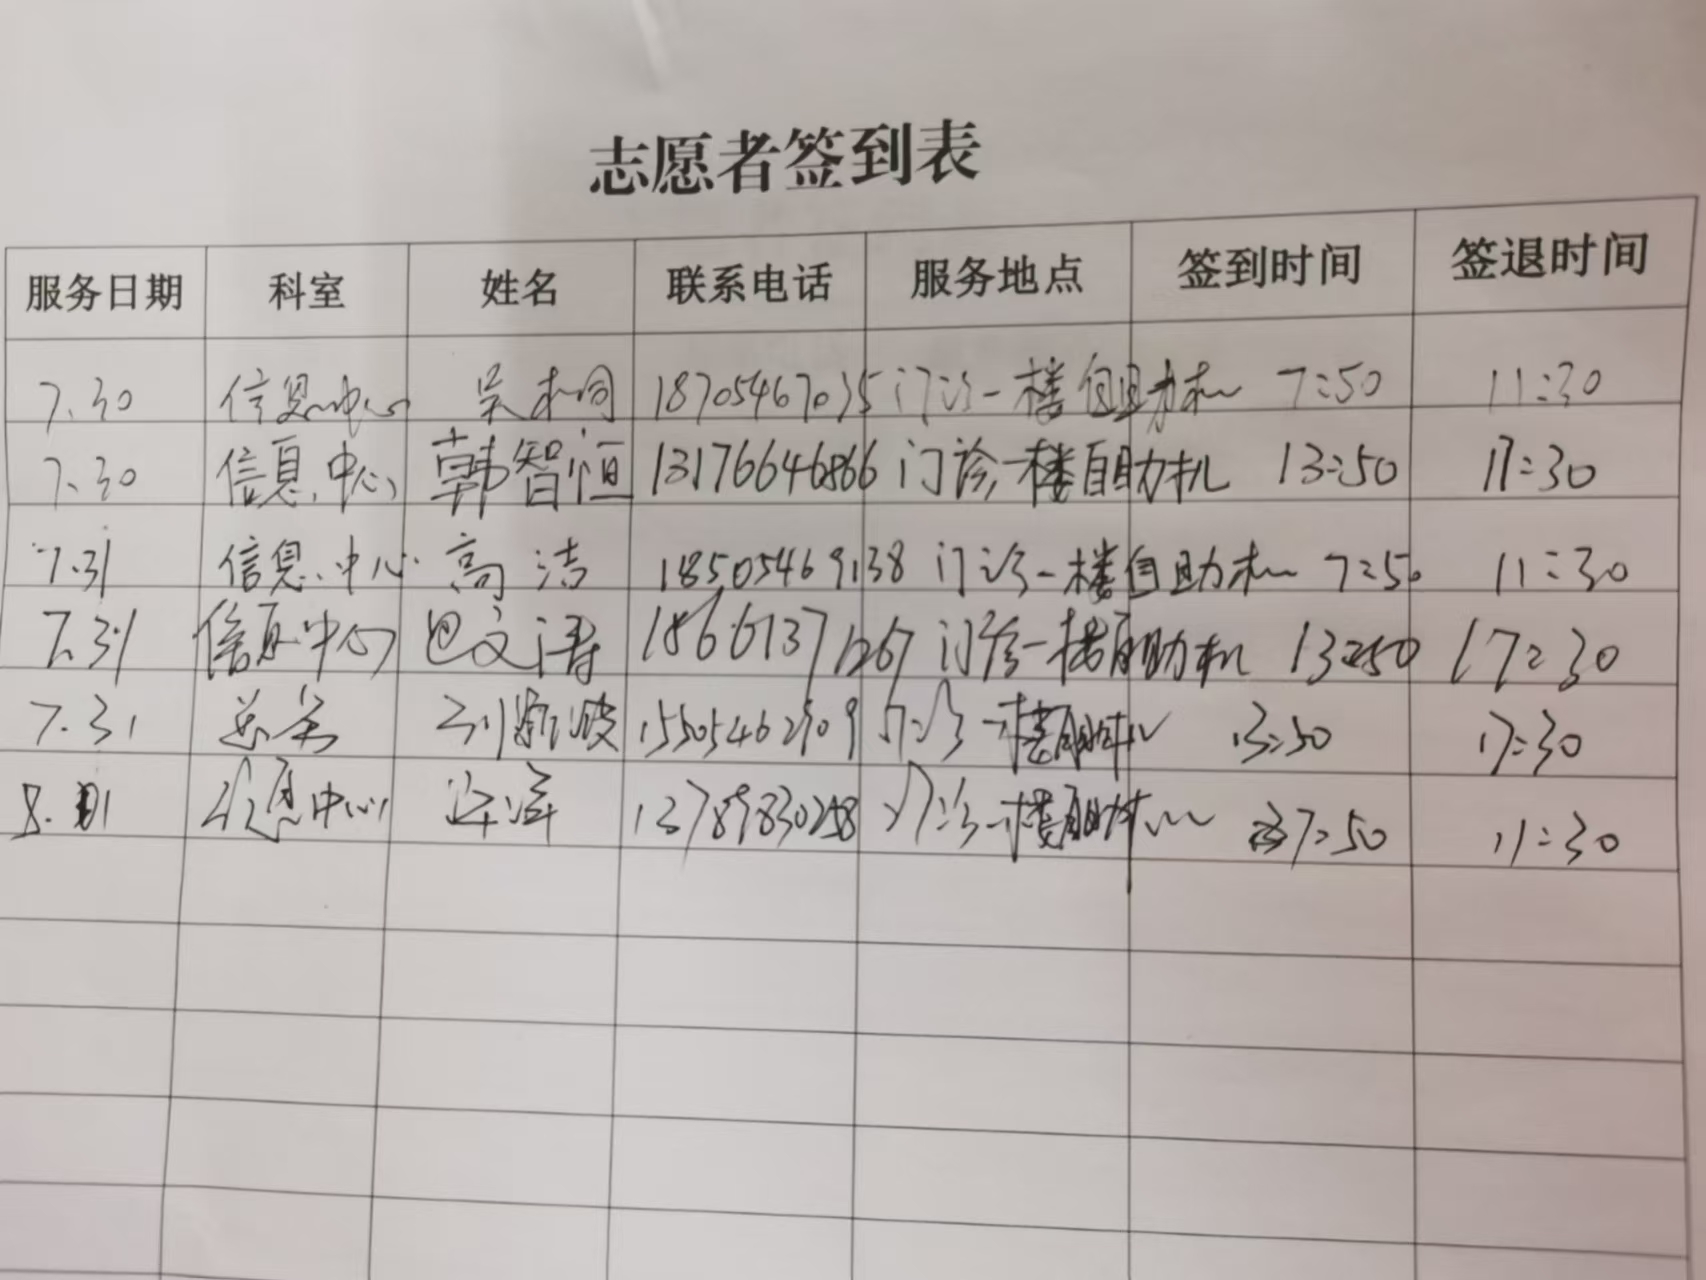 志愿者签到表
服务日期 科室 姓名 联系电话 服务地点 签到时间 签退时间
7.30 信息中心 吴 18705467035 门诊一楼自助机 7:50 11:30
7.30 信息中心 韩智恒 13176646866 门诊一楼自助机 13:50 17:30
7.31 信息中心 高洁 18505469138 门诊一楼自助机 7:50 11:30
7.31 信息中心 巴文涛 18661371267 门诊一楼自助机 13:50 17:30
7.31 刘 15505462909 门诊一楼自助机 13:50 17:30
8.1 信息中心 13789830258 门诊一楼自助机 7:50 11:30